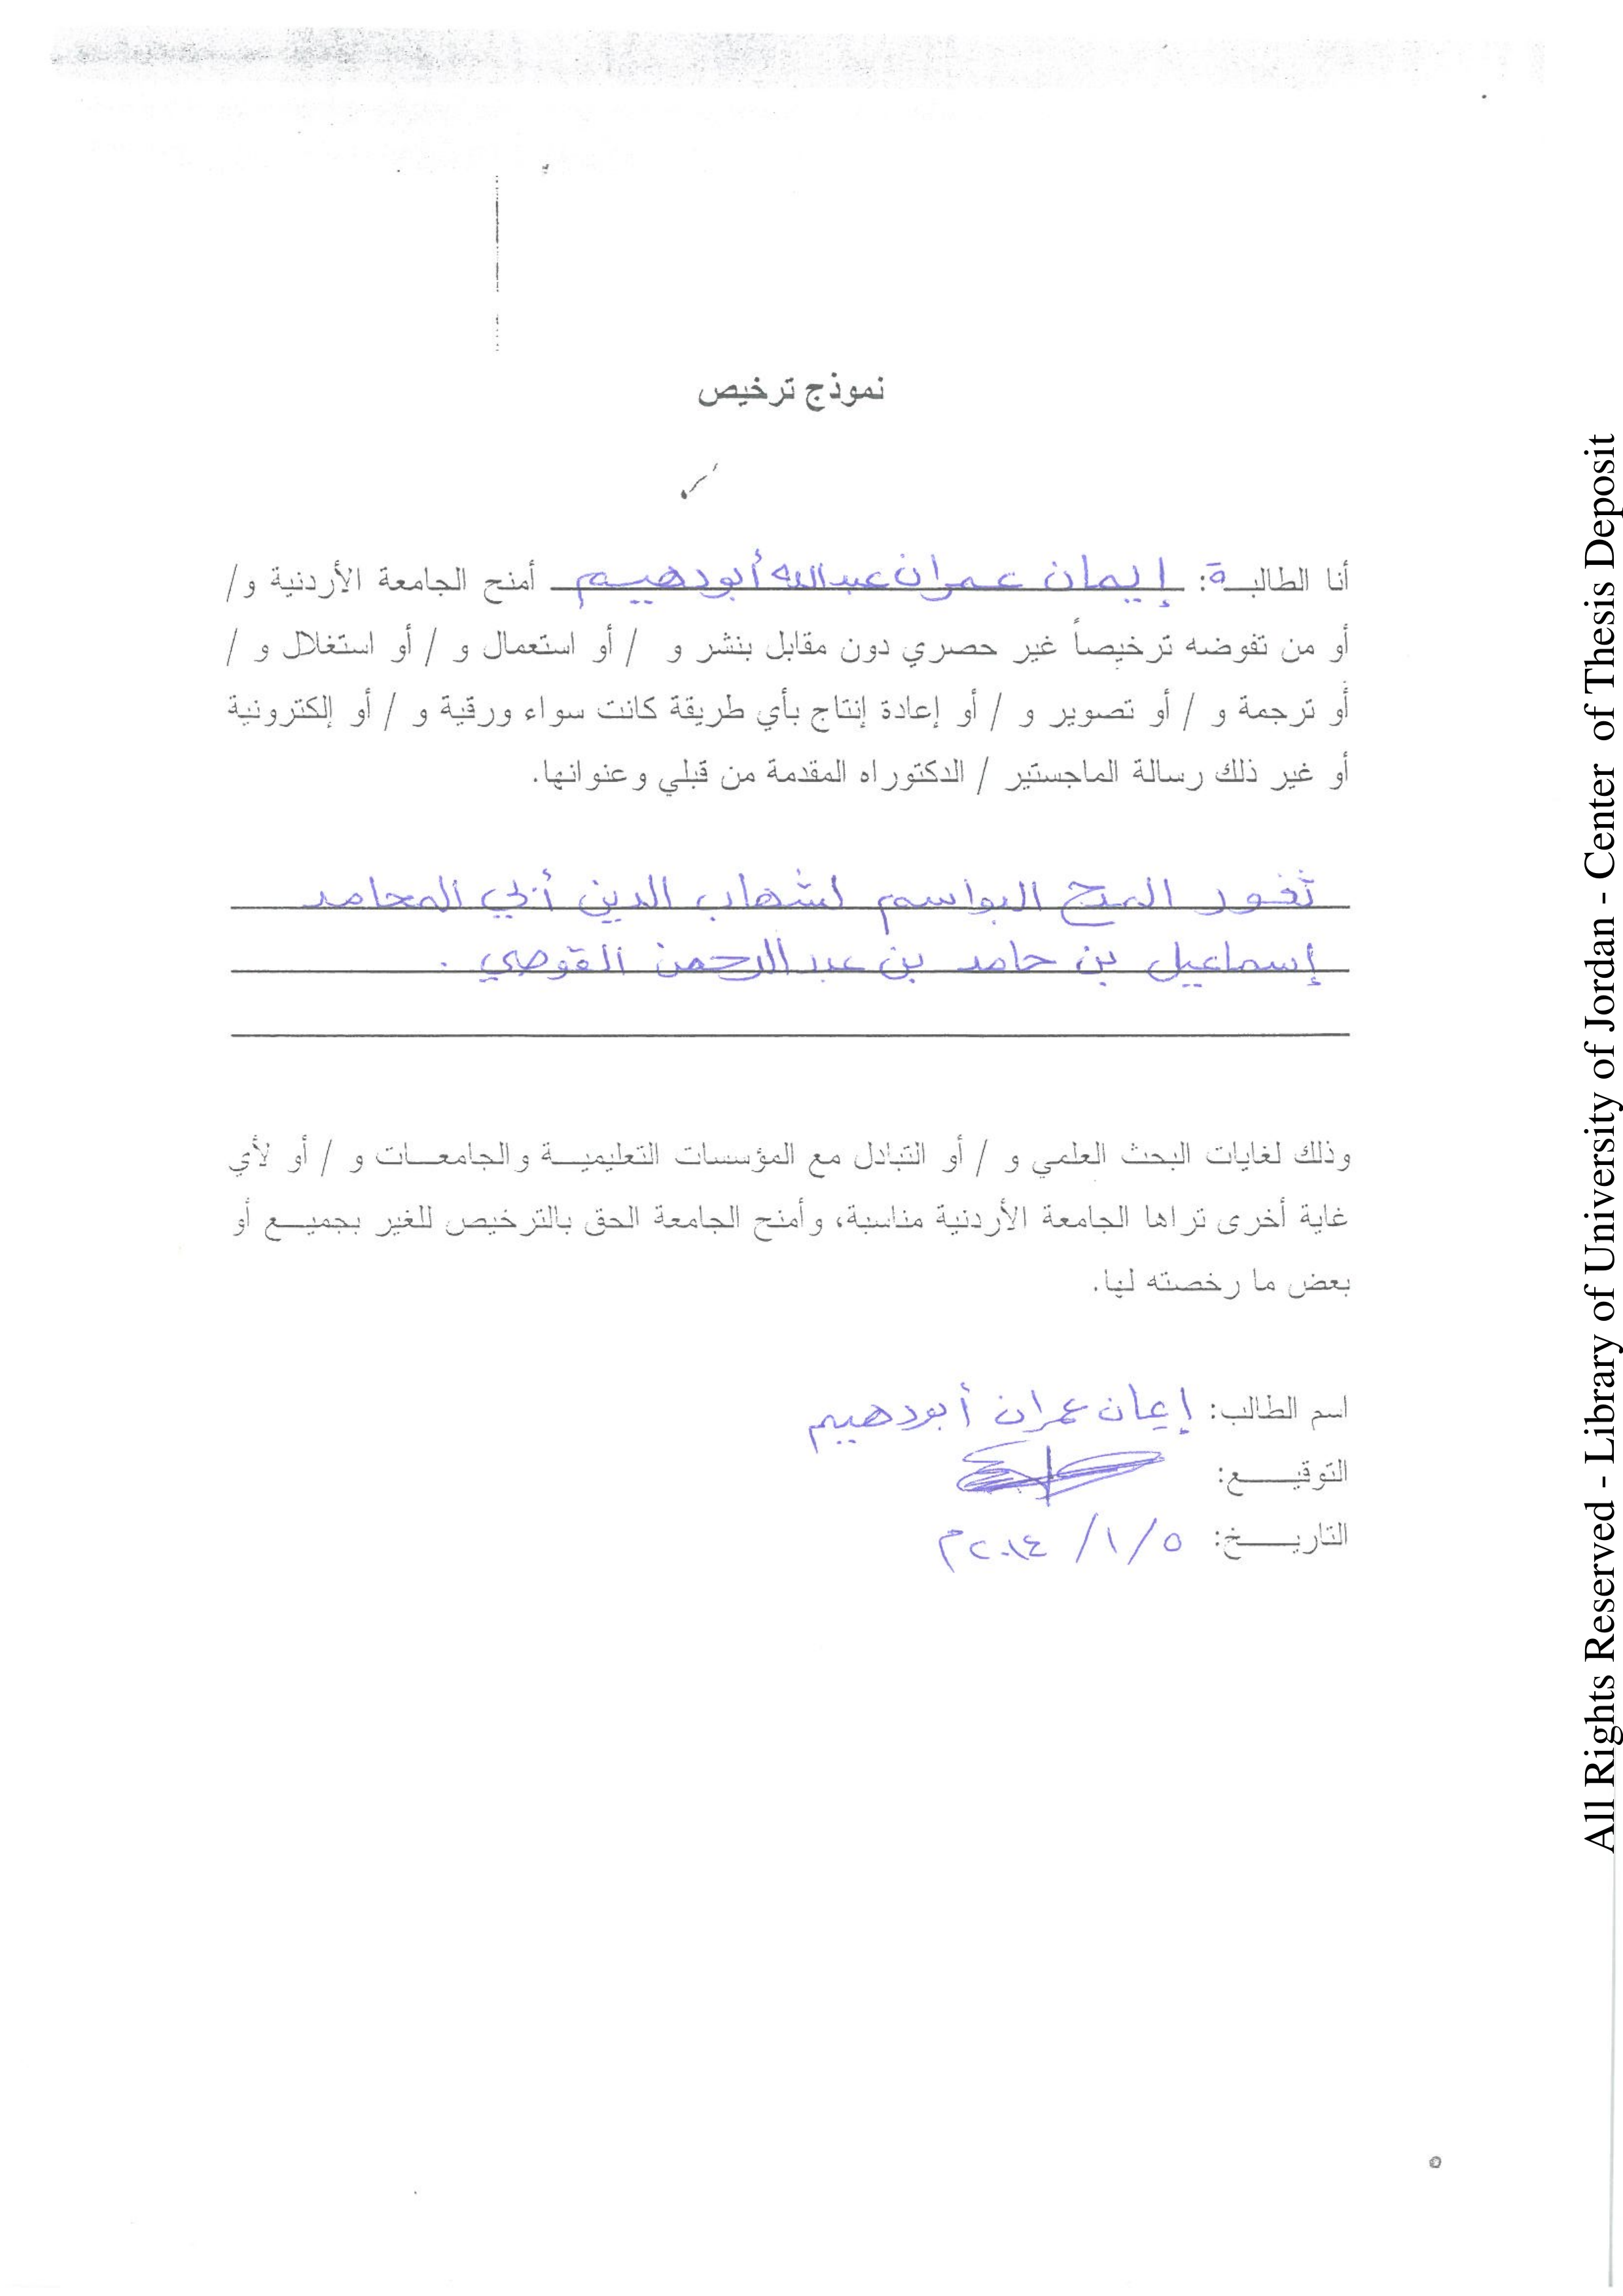 نموذج ترخيص
أنا الطالبـة: إيمان عمران عبدالله أبودهيم أمنح الجامعة الأردنية و/
أو من تفوضه ترخيصاً غير حصري دون مقابل بنشر و / أو استعمال و / أو استغلال و /
أو ترجمة و / أو تصوير و / أو إعادة إنتاج بأي طريقة كانت سواء ورقية و / أو إلكترونية
أو غير ذلك رسالة الماجستير / الدكتوراه المقدمة من قبلي وعنوانها.
ثغور المدح البواسم لشهاب الدين أبي المحامد
إسماعيل بن حامد بن عبدالرحمن القوصي .
وذلك لغايات البحث العلمي و / أو التبادل مع المؤسسات التعليميـة والجامعـات و / أو لأي
غاية أخرى تراها الجامعة الأردنية مناسبة، وأمنح الجامعة الحق بالترخيص للغير بجميـع أو
بعض ما رخصته لها.
اسم الطالب: إيمان عمران أبودهيم
التوقيـع:
التاريـخ: ٥/١/٢٠١٤م
All Rights Reserved - Library of University of Jordan - Center of Thesis Deposit